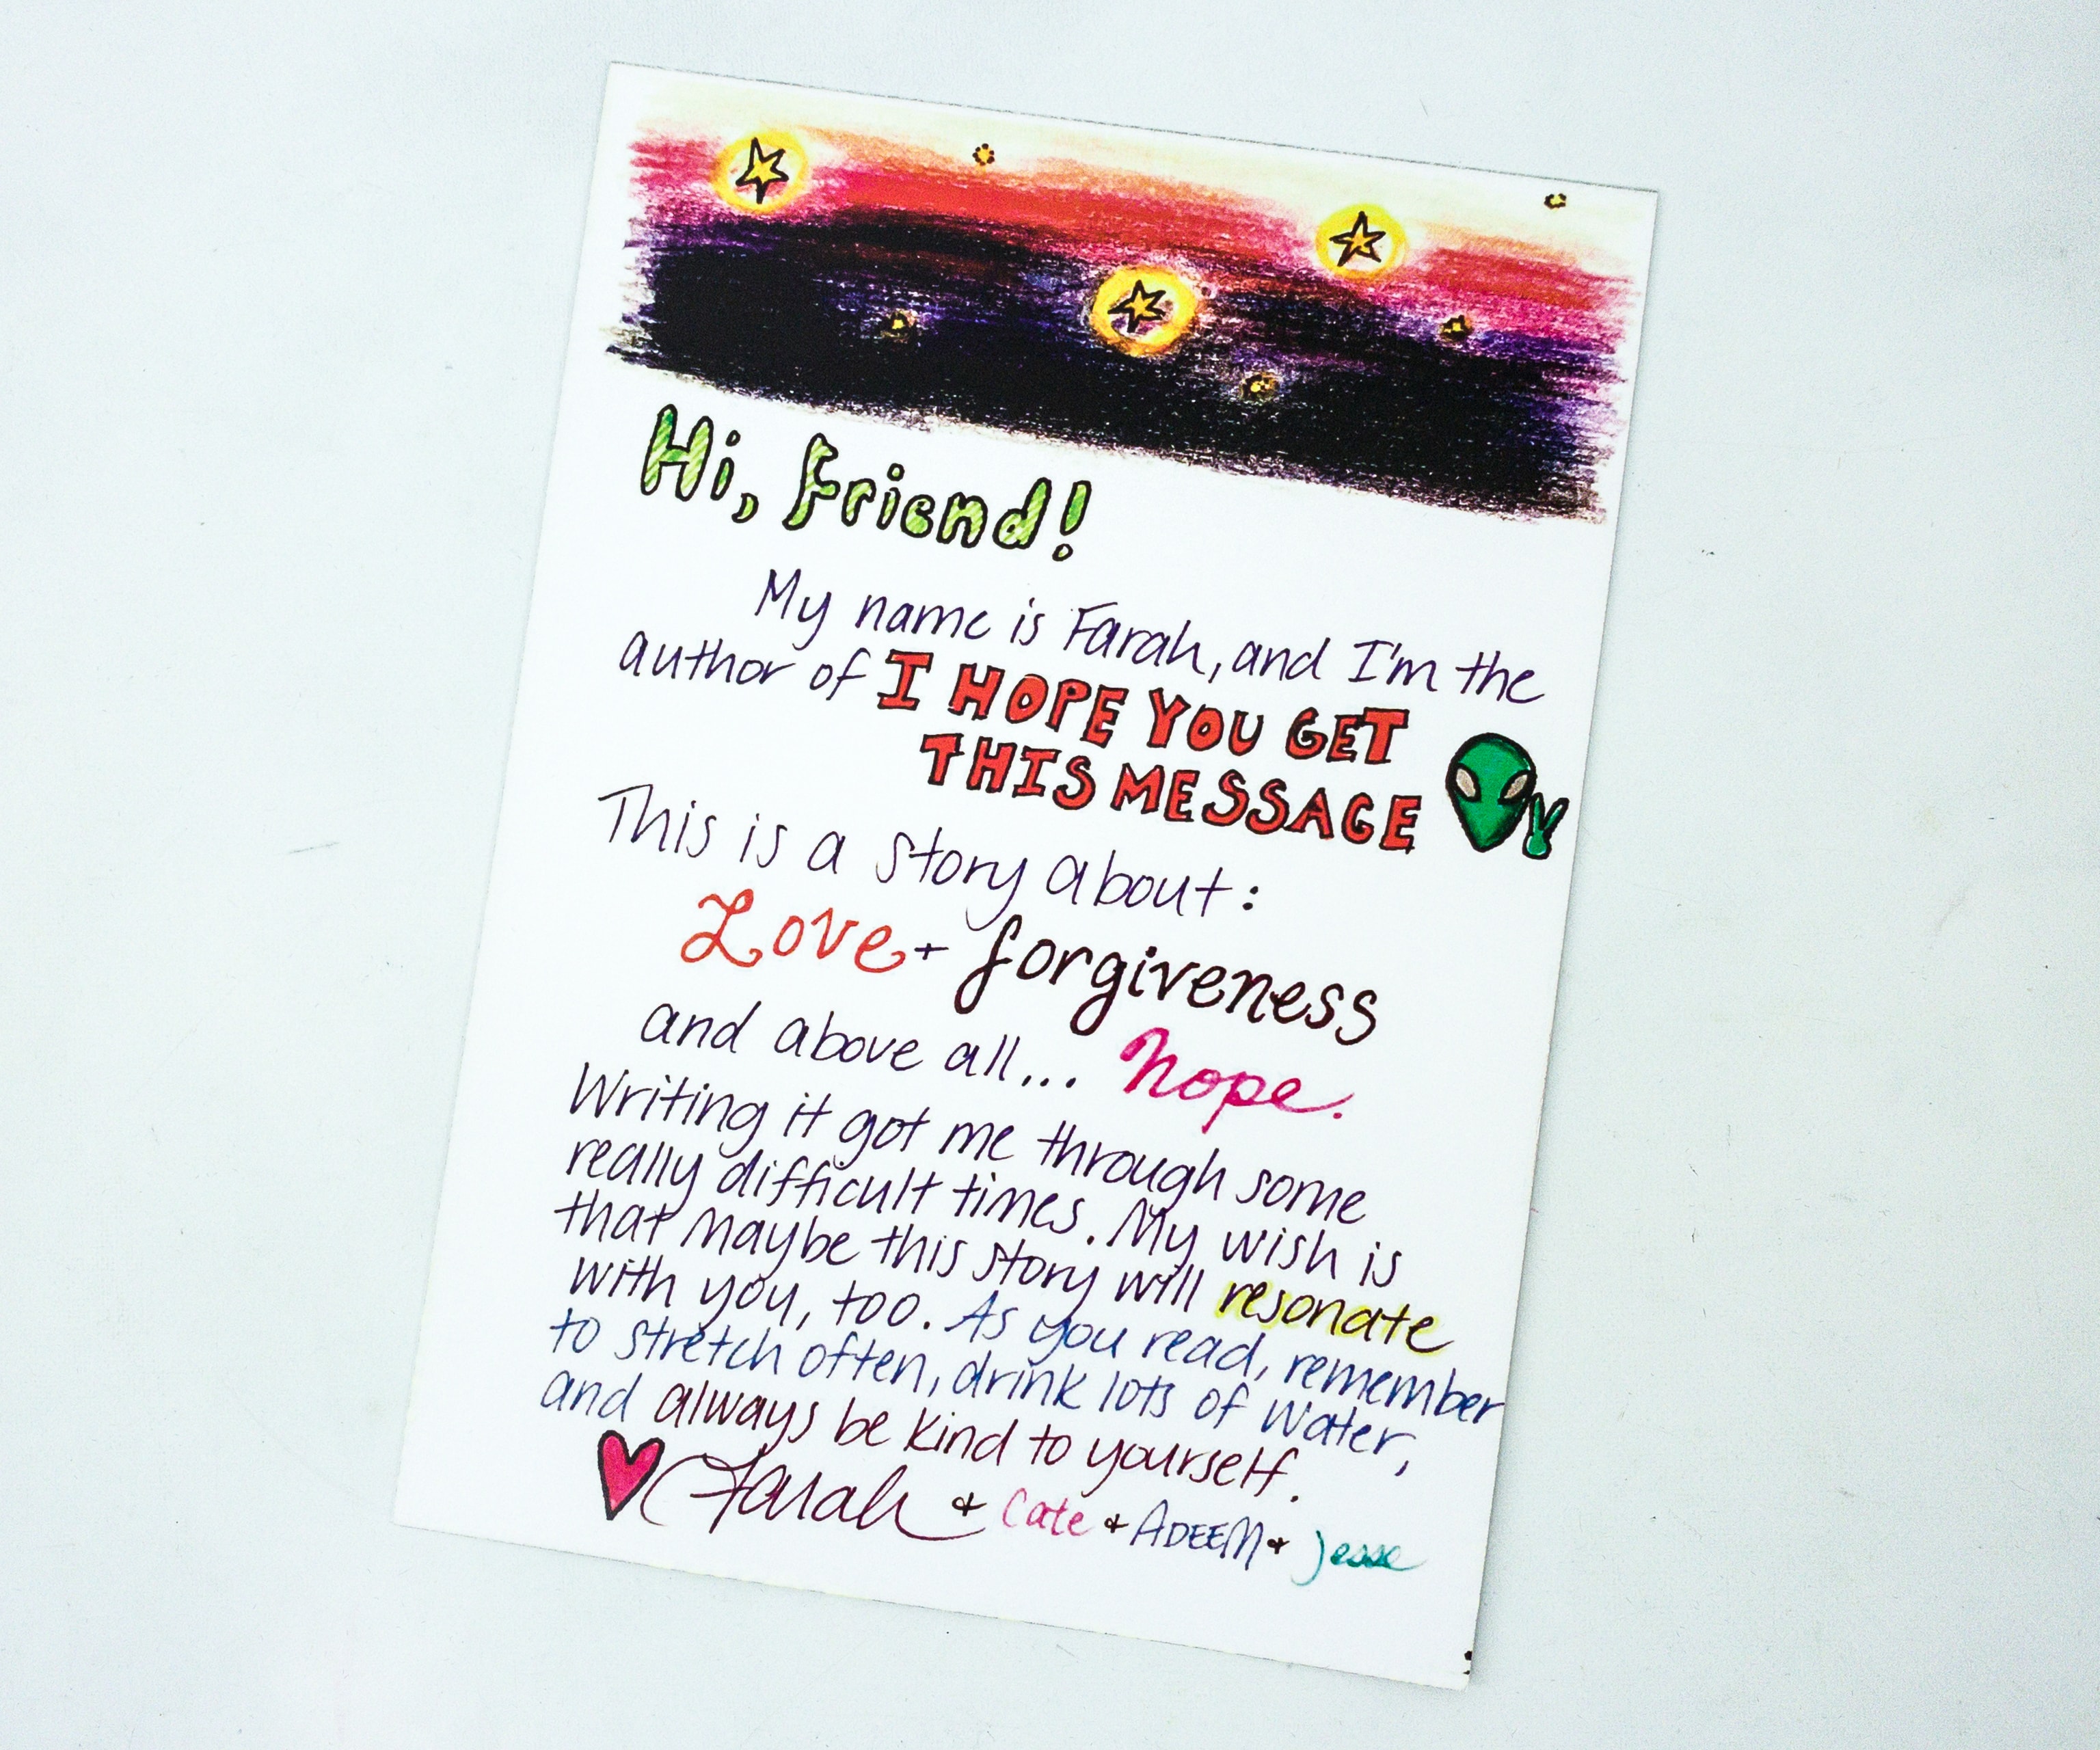 Hi, friend!
My name is Farah, and I'm the
author of I HOPE YOU GET
THIS MESSAGE
This is a story about:
Love + forgiveness
and above all... hope.
Writing it got me through some
really difficult times. My wish is
that maybe this story will resonate
with you, too. As you read, remember
to stretch often, drink lots of water,
and always be kind to yourself.
Farah + Cate + ADEEM + Jesse